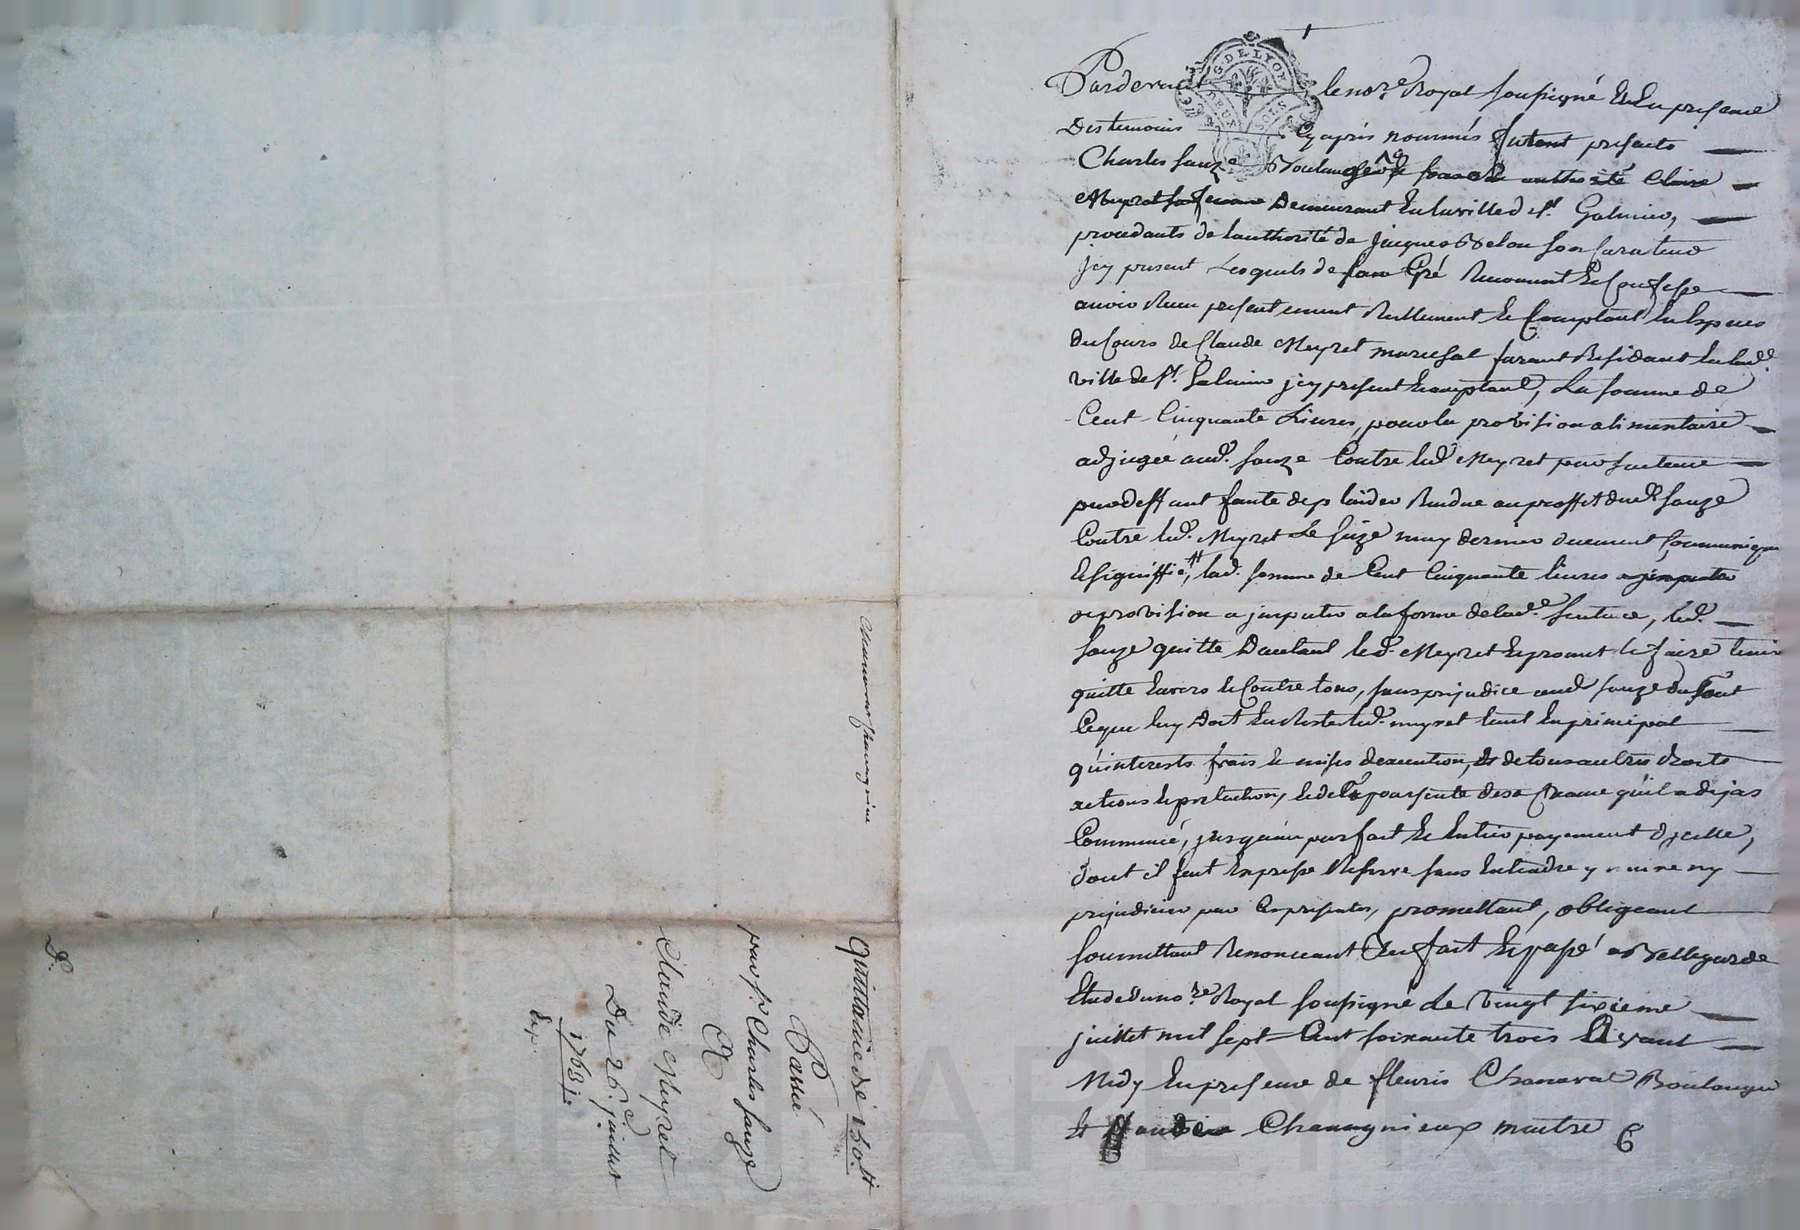 Pardevant le no.re Royal soussigné Et En presence
Des temoins Cy aprés nommés furent presents
Charles Sauze Boulanger de authorité Claire
Meyret sa femme Demeurant En la ville de St. Galmier,
procedants de lauthorité de Jacques Belon son Curateur
jcy present Lesquels de leur Gré Reconnoit Et Confesse
avoir Receu presentement Reellement Et Comptant En Especes
du Cours de Claude Meyret marechal ferant Residant En lad.e
ville de St. Galmier jcy present Et acceptant, La somme de
Cent Cinquante Livres, pour la provision alimentaire
adjugée aud. Sauze Contre led. Meyret par sentence
par deffaut faute de plaider Rendue au proffit dud. Sauze
Contre led. Meyret Le seize may dernier duement
Et signiffiée, lad. somme de Cent Cinquante livres
de provision a jmputer a la forme de lad.e sentence, led.
Sauze quitte Dautant led. Meyret Et promet le faire tenir
quitte Envers Et Contre tous, sans prejudice aud. Sauze du tout
Ce que luy doit En Reste led. meyret tant En principal
qu'interests frais Et mises d'execution, Et de tous autres droits
actions Et pretentions, Et de la poursuitte des qu'il a dejas
Commencé, jusqu'au parfait Et Entier payement d'jcelle,
dont il fait Expresse Reserve sans Entendre y nuire ny
prejudicier par Ces presentes, promettant, obligeant
soumettant Renonceant Ceu fait Et passé a Bellegarde
Etude du no.re Royal soussigné Le Vingt sixieme
juillet mil sept Cent soixante trois avant
Midy En presence de fleuris Chanavat Boulanger
Et Chavagnieux maitre
G. DE LYON
DEUX SOLS
Quittance de 150.tt
Passée
par sr. Charles Sauze
A
Claude Meyret
Du 26.e juillet
1763
Exp.